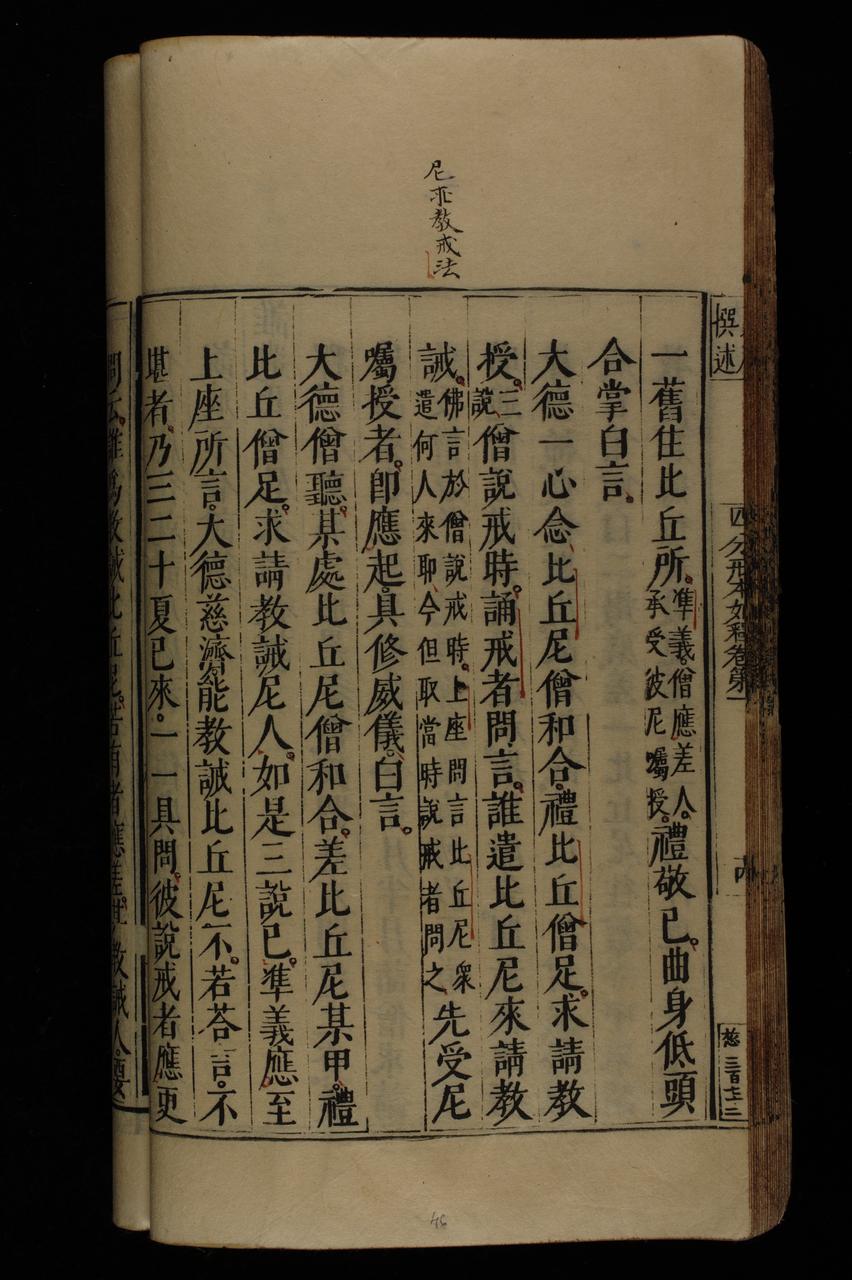 尼求教戒法
撰述
四分戒本如釋卷第一
一舊住比丘所。準義。僧應差人。承受彼尼囑授。禮敬已。曲身低頭
合掌白言。
大德一心念。比丘尼僧和合。禮比丘僧足。求請教
授。三說僧說戒時。誦戒者問言。誰遣比丘尼來請教
誡。佛言於僧說戒時。上座問言比丘尼衆遣何人來耶今但取當時說戒者問之先受尼
囑授者。即應起。具修威儀。白言。
大德僧聽。某處比丘尼僧和合。差比丘尼某甲。禮
比丘僧足。求請教誡尼人。如是三說已。準義應至
上座所言。大德慈濟能教誡比丘尼不。若荅言。不
堪者。乃至二十夏已來。一一具問。彼說戒者應更
問云。誰爲教誡比丘尼。若有者應差。
46